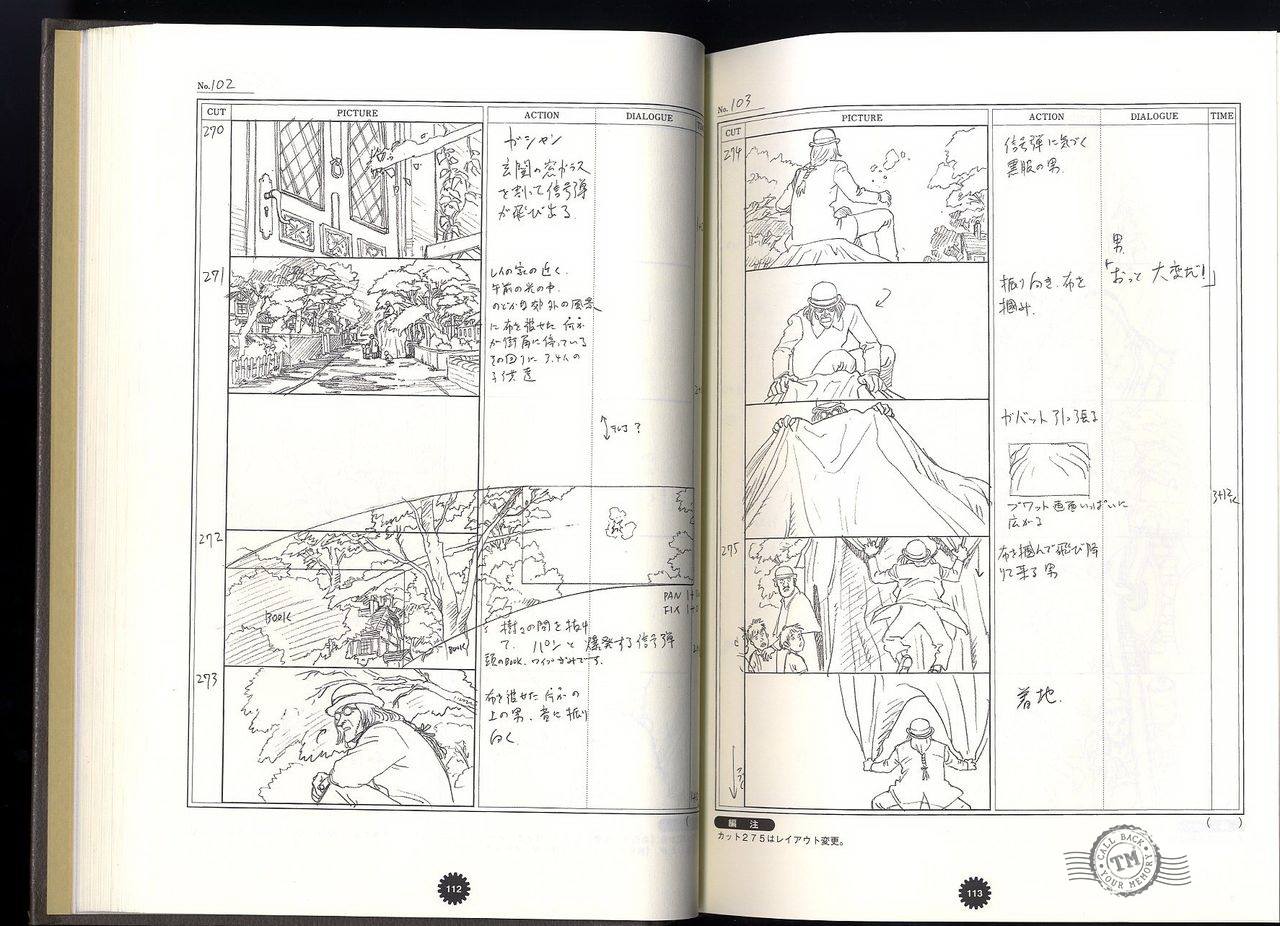 No. 102
CUT PICTURE ACTION DIALOGUE
270
ガシャン
玄関の窓ガラス
を割って信号弾
が飛び出る
271
レイの家の近く.
午前の光の中.
のどかな郊外の風景
に布を被せた何か
が街角に停っている
その回りに3.4人の
子供達
272
BOOK
BOOK
PAN
FIX
樹々の間を抜け
て、パンと爆発する信号弾
273
布を被せた何かの
上の男、音に振り
向く.
112
No. 103
CUT PICTURE ACTION DIALOGUE TIME
274
信号弾に気づく
黒服の男.
男.
「おって 大変だ!」
振り向き、布を
掴み.
ガバット引っ張る
ブワット画面いっぱいに
広がる
3+12
275
布を掴んで飛び降
りて来る男
着地.
つづく
( )
編 注
カット275はレイアウト変更。
CALL BACK
TM
YOUR MEMORY
113